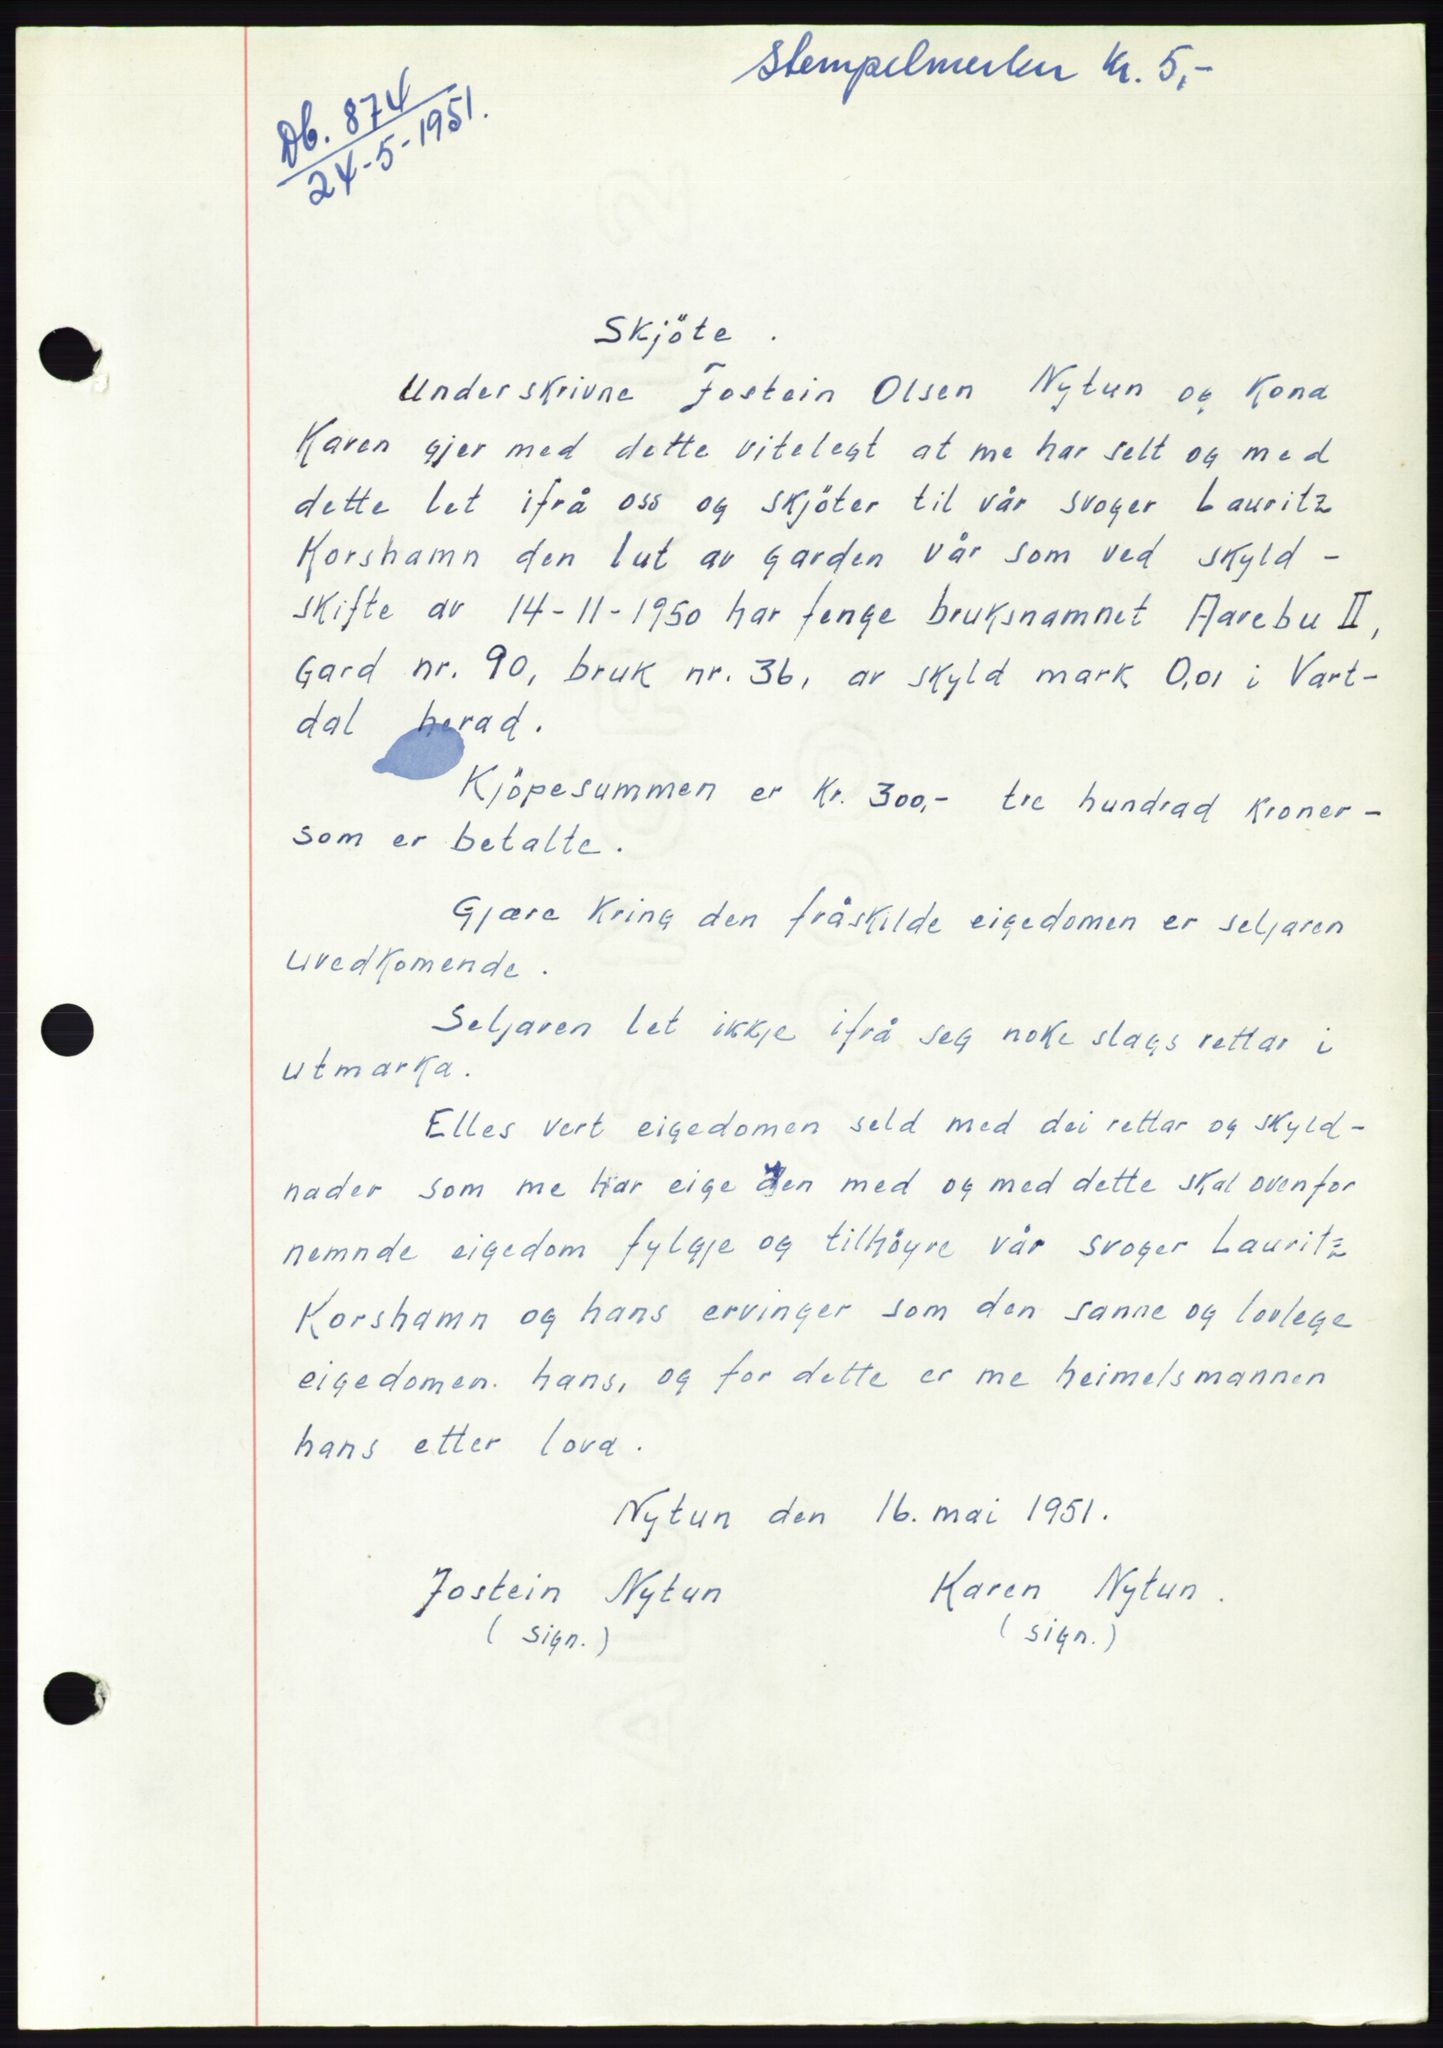 Stempelmerker Kr. 5,-
Db. 874
24-5-1951.
Skjöte.
Underskrivne Jostein Olsen Nytun og Kona
Karen gjer med dette vitelegt at me har selt og med
dette let ifrå oss og skjöter til vår svoger Lauritz
Korshamn den lut av garden vår som ved skyld-
skifte av 14-11-1950 har fenge bruksnamnet Aarebu II,
Gard nr. 90, bruk nr. 36, av skyld mark 0,01 i Vart-
dal herad.
Kjöpesummen er Kr. 300,- tre hundrad Kroner-
som er betalte.
Gjære Kring den fråskilde eigedomen er seljaren
uvedkomende.
Seljaren let ikkje ifrå seg noke slags rettar i
utmarka.
Elles vert eigedomen seld med dei rettar og skyld-
nader som me har eige den med og med dette skal ovenfor
nemnde eigedom fylgje og tilhöyre vår svoger Lauritz
Korshamn og hans ervinger som den sanne og lovlege
eigedomen. hans, og for dette er me heimelsmannen
hans etter lova.
Nytun den 16. mai 1951.
Jostein Nytun Karen Nytun.
(sign.) (sign.)